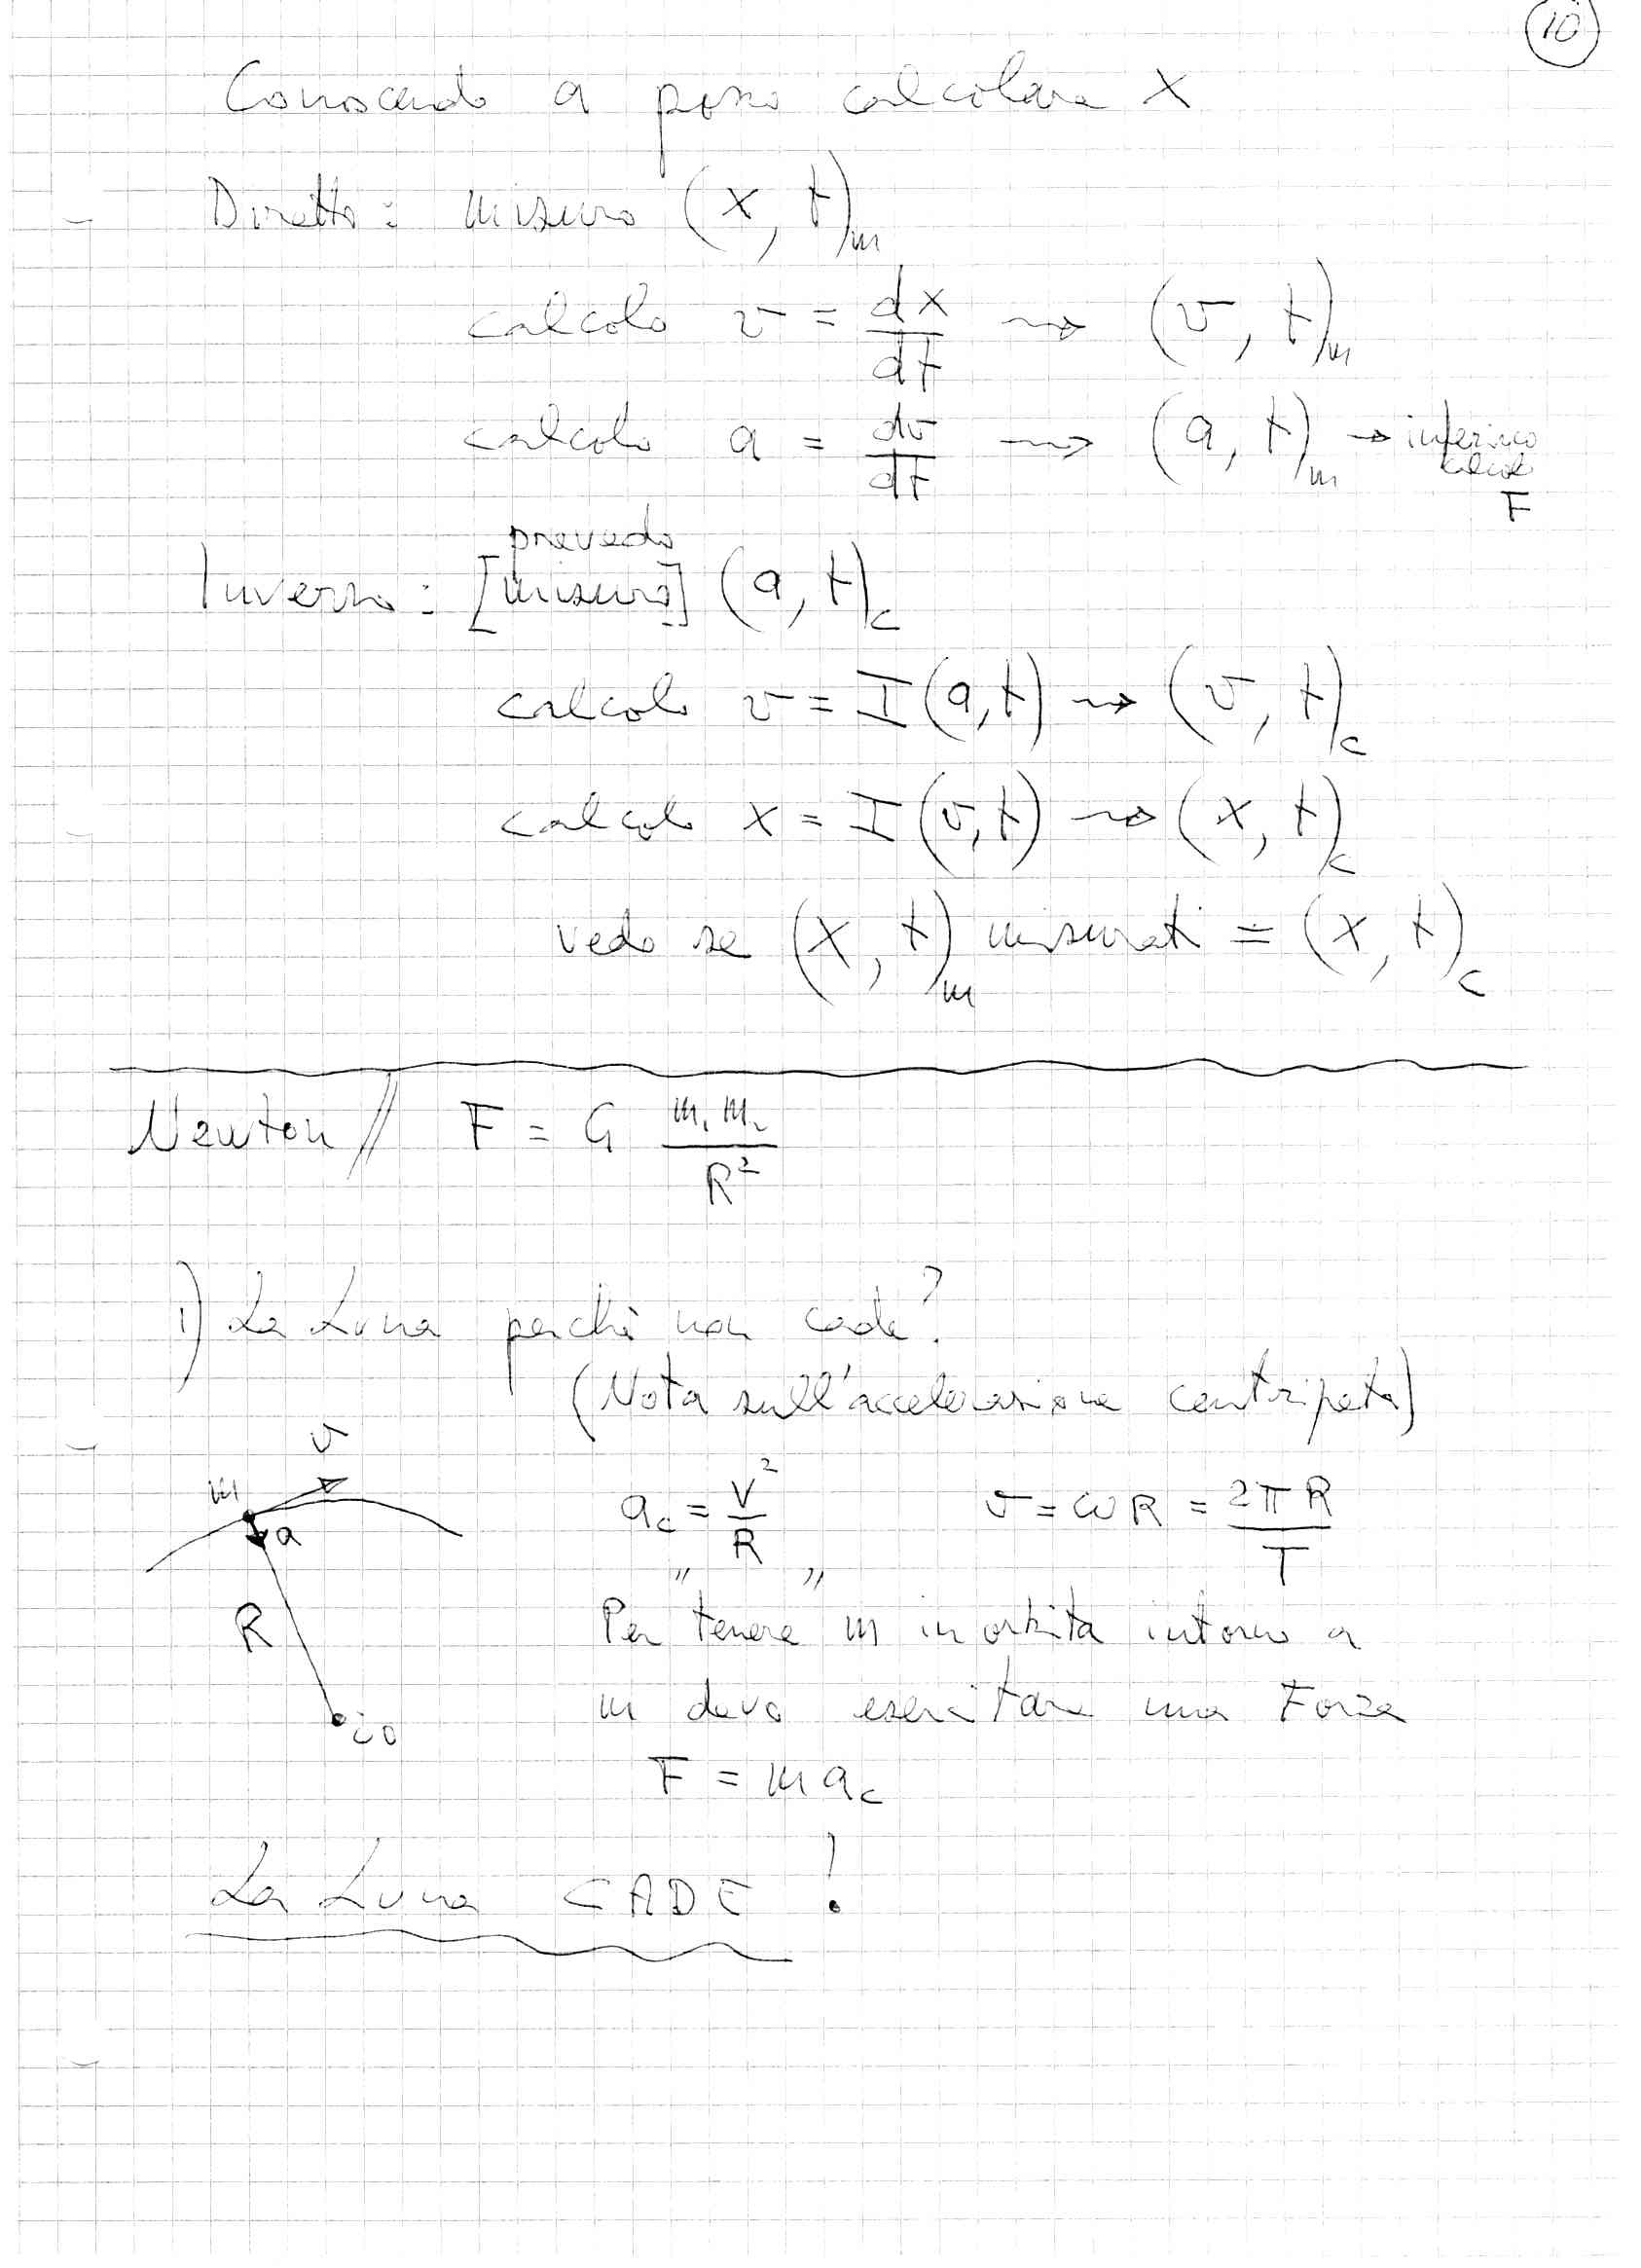 10
Conoscendo a posso calcolare x
Diretto: misuro (x, t)m
calcolo v = dx/dt ⇝ (v, t)m
calcolo a = dv/dt ⇝ (a, t)m → inferisco
calcolo
F
prevedo
Inverso: [misuro] (a, t)c
calcolo v = I(a,t) ⇝ (v, t)c
calcolo x = I(v,t) ⇝ (x, t)c
vedo se (x, t)m misurati = (x, t)c
Newton // F = G m₁ m₂ / R²
1) La Luna perché non cade?
(Nota sull'accelerazione centripeta)
v
m
a
R
io
ac = v²/R v = ωR = 2πR/T
Per tenere "m" in orbita intorno a
me devo esercitare una Forza
F = m ac
La Luna CADE !